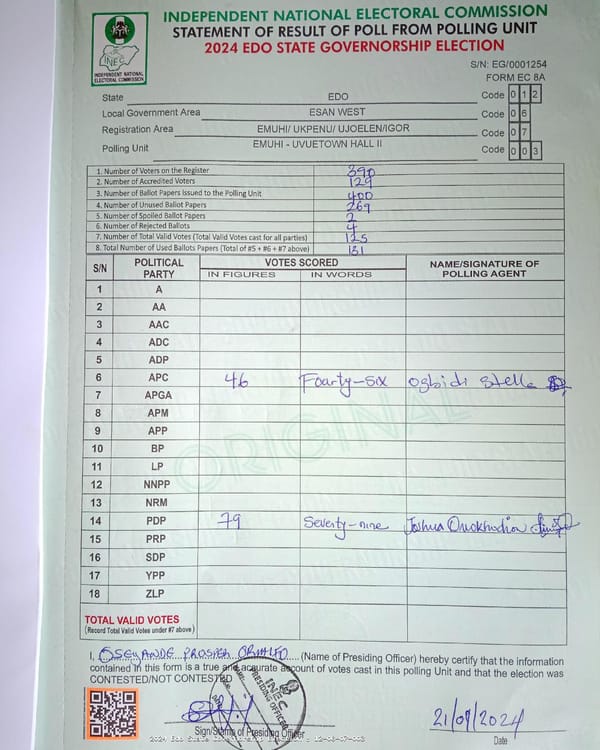 INDEPENDENT NATIONAL ELECTORAL COMMISSION
STATEMENT OF RESULT OF POLL FROM POLLING UNIT
2024 EDO STATE GOVERNORSHIP ELECTION
INEC
INDEPENDENT NATIONAL
ELECTORAL COMMISSION
S/N: EG/0001254
FORM EC 8A
State EDO Code 0 1 2
Local Government Area ESAN WEST Code 0 6
Registration Area EMUHI/ UKPENU/ UJOELEN/IGOR Code 0 7
Polling Unit EMUHI - UVUETOWN HALL II Code 0 0 3
1. Number of Voters on the Register 390
2. Number of Accredited Voters 129
3. Number of Ballot Papers Issued to the Polling Unit 400
4. Number of Unused Ballot Papers 269
5. Number of Spoiled Ballot Papers 2
6. Number of Rejected Ballots 4
7. Number of Total Valid Votes (Total Valid Votes cast for all parties) 125
8. Total Number of Used Ballots Papers (Total of #5 + #6 + #7 above) 131
S/N POLITICAL PARTY VOTES SCORED NAME/SIGNATURE OF POLLING AGENT
IN FIGURES IN WORDS
1 A
2 AA
3 AAC
4 ADC
5 ADP
6 APC 46 Fourty-six ogbidi stella
7 APGA
8 APM
9 APP
10 BP
11 LP
12 NNPP
13 NRM
14 PDP 79 Seventy-nine Joshua
15 PRP
16 SDP
17 YPP
18 ZLP
ORIGINAL
TOTAL VALID VOTES
(Record Total Valid Votes under #7 above)
I, PROSPER (Name of Presiding Officer) hereby certify that the information
contained in this form is a true and accurate account of votes cast in this polling Unit and that the election was
CONTESTED/NOT CONTESTED
INEC
PRESIDING OFFICER
Sign/Stamp of Presiding Officer
21/09/2024
Date